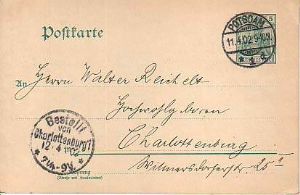 Postkarte
POTSDAM
11.4.02 9-10N.
5
An Herrn Walter Reichelt
Hochwohlgeboren
Charlottenburg
Wilmersdorferstr. 25
Bestellt
von
Charlottenburg 1
12/4 02
7¼-9V.
Wohnung
(Straße und Hausnummer)